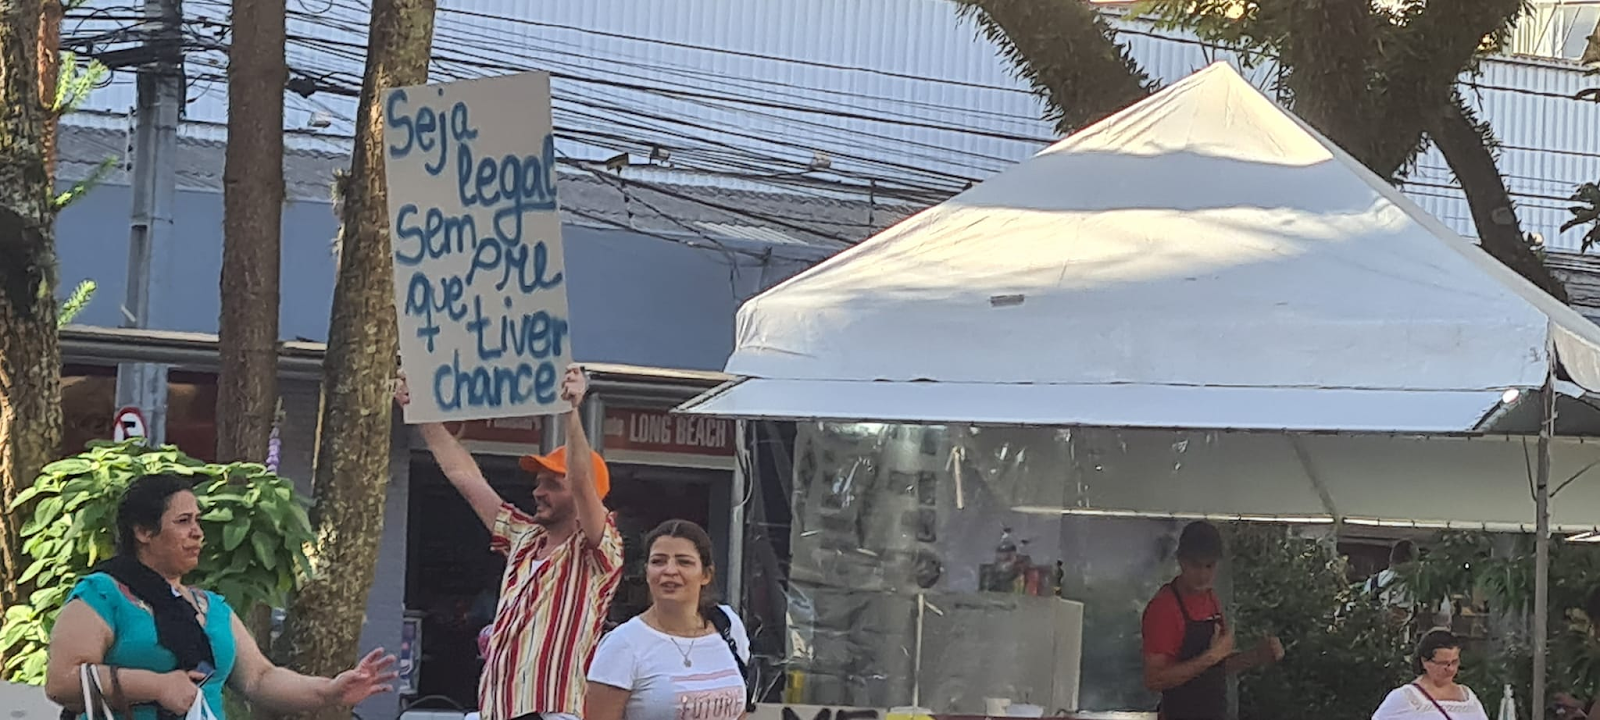 Seja
legal
Sempre
que tiver
+
chance
LONG BEACH
FUTURE